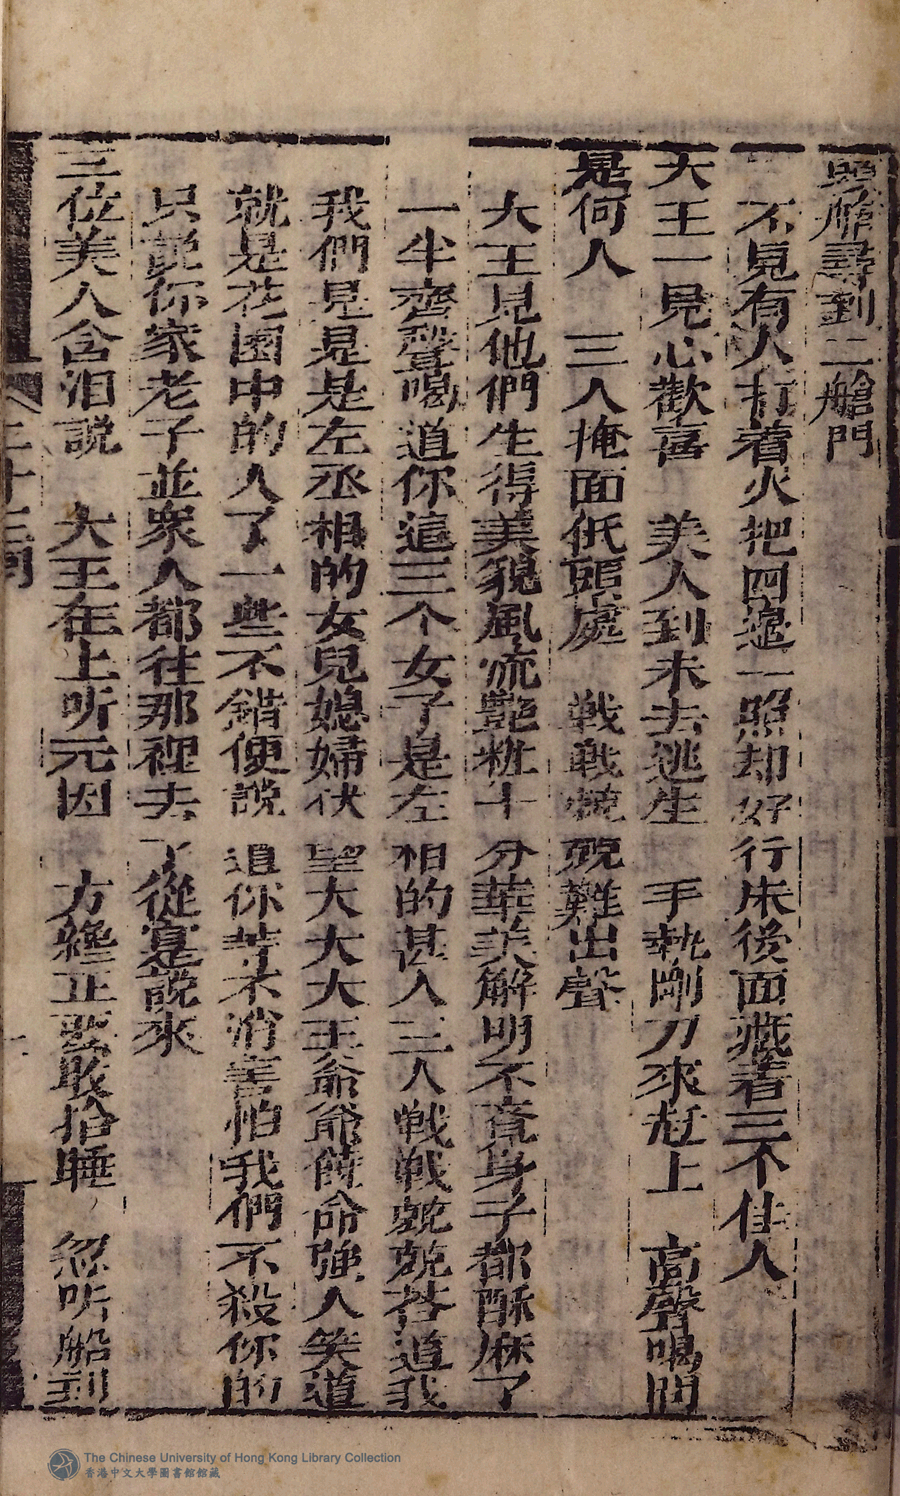 頭艙尋到二艙門
不見有人打着火把四邉一照却好行床後面藏着三不佳人
大王一見心歡喜　美人到未去逃生　手執剛刀來赶上　高聲喝問
是何人　三人掩面低頭處　戦戦兢兢難出聲
大王見他們生得美貌風流艶粧十分華美解明不竟身子都酥麻了
一半齊聲喝道你這三个女子是左相的甚人三人戦戦兢兢荅道我
我們是是是左丞相的女兒媳婦伏望大大大王爺爺饒命強人笑道
就是花園中的人了一些不錯便説道你等不消害怕我們不殺你的
只説你家老子並衆人都往那裡去了從寔説來
三位美人含泪説　大王在上听元因　方纔正要收拾睡　忽听船到
二十三囘
The Chinese University of Hong Kong Library Collection
香港中文大學圖書館館藏